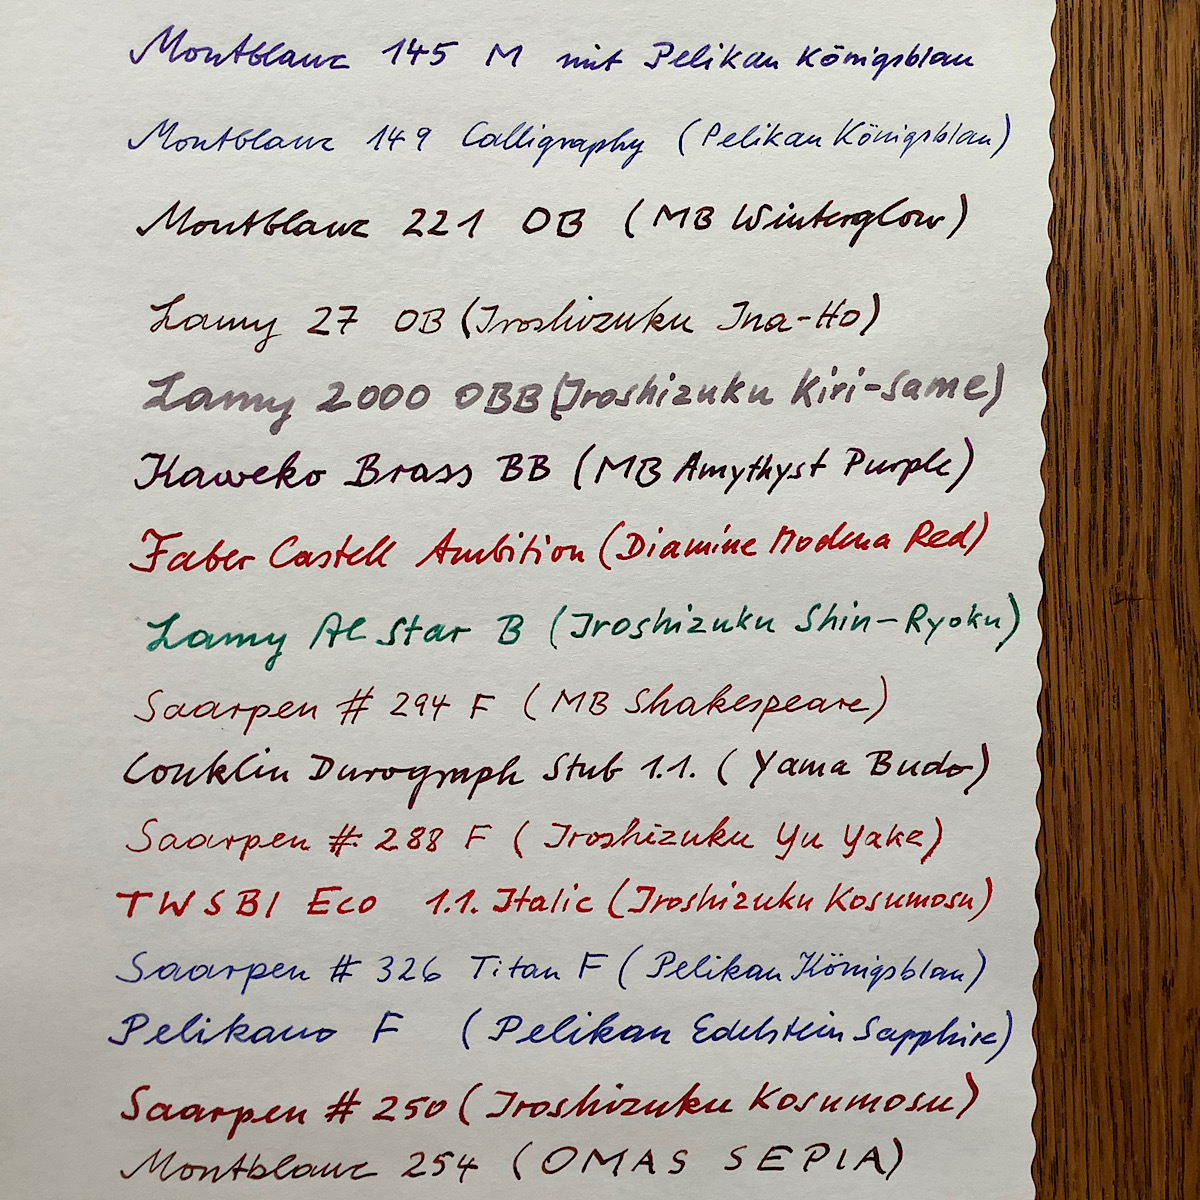 Montblanc 145 M mit Pelikan Königsblau
Montblanc 149 Calligraphy (Pelikan Königsblau)
Montblanc 221 OB (MB Winterglow)
Lamy 27 OB (Iroshizuku Ina-Ho)
Lamy 2000 OBB (Iroshizuku Kiri-Same)
Kaweko Brass BB (MB Amythyst Purple)
Faber Castell Ambition (Diamine Modena Red)
Lamy Al Star B (Iroshizuku Shin-Ryoku)
Saarpen # 294 F (MB Shakespeare)
Conklin Durograph Stub 1.1. (Yama Budo)
Saarpen # 288 F (Iroshizuku Yu Yake)
TWSBI Eco 1.1. Italic (Iroshizuku Kosumosu)
Saarpen # 326 Titan F (Pelikan Königsblau)
Pelikano F (Pelikan Edelstein Sapphire)
Saarpen # 250 (Iroshizuku Kosumosu)
Montblanc 254 (OMAS SEPIA)